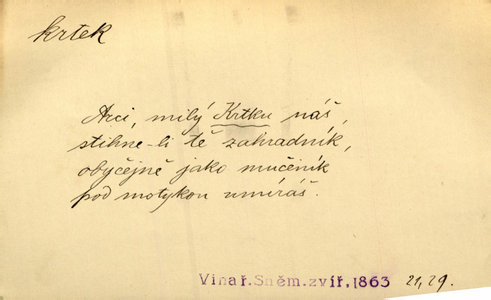 krtek
Arci, milý Krtku náš,
stihne-li tě zahradník,
obyčejně jako mučeník
pod motykou umíráš.
Vinař.Sněm.zvíř.1863 21,29.